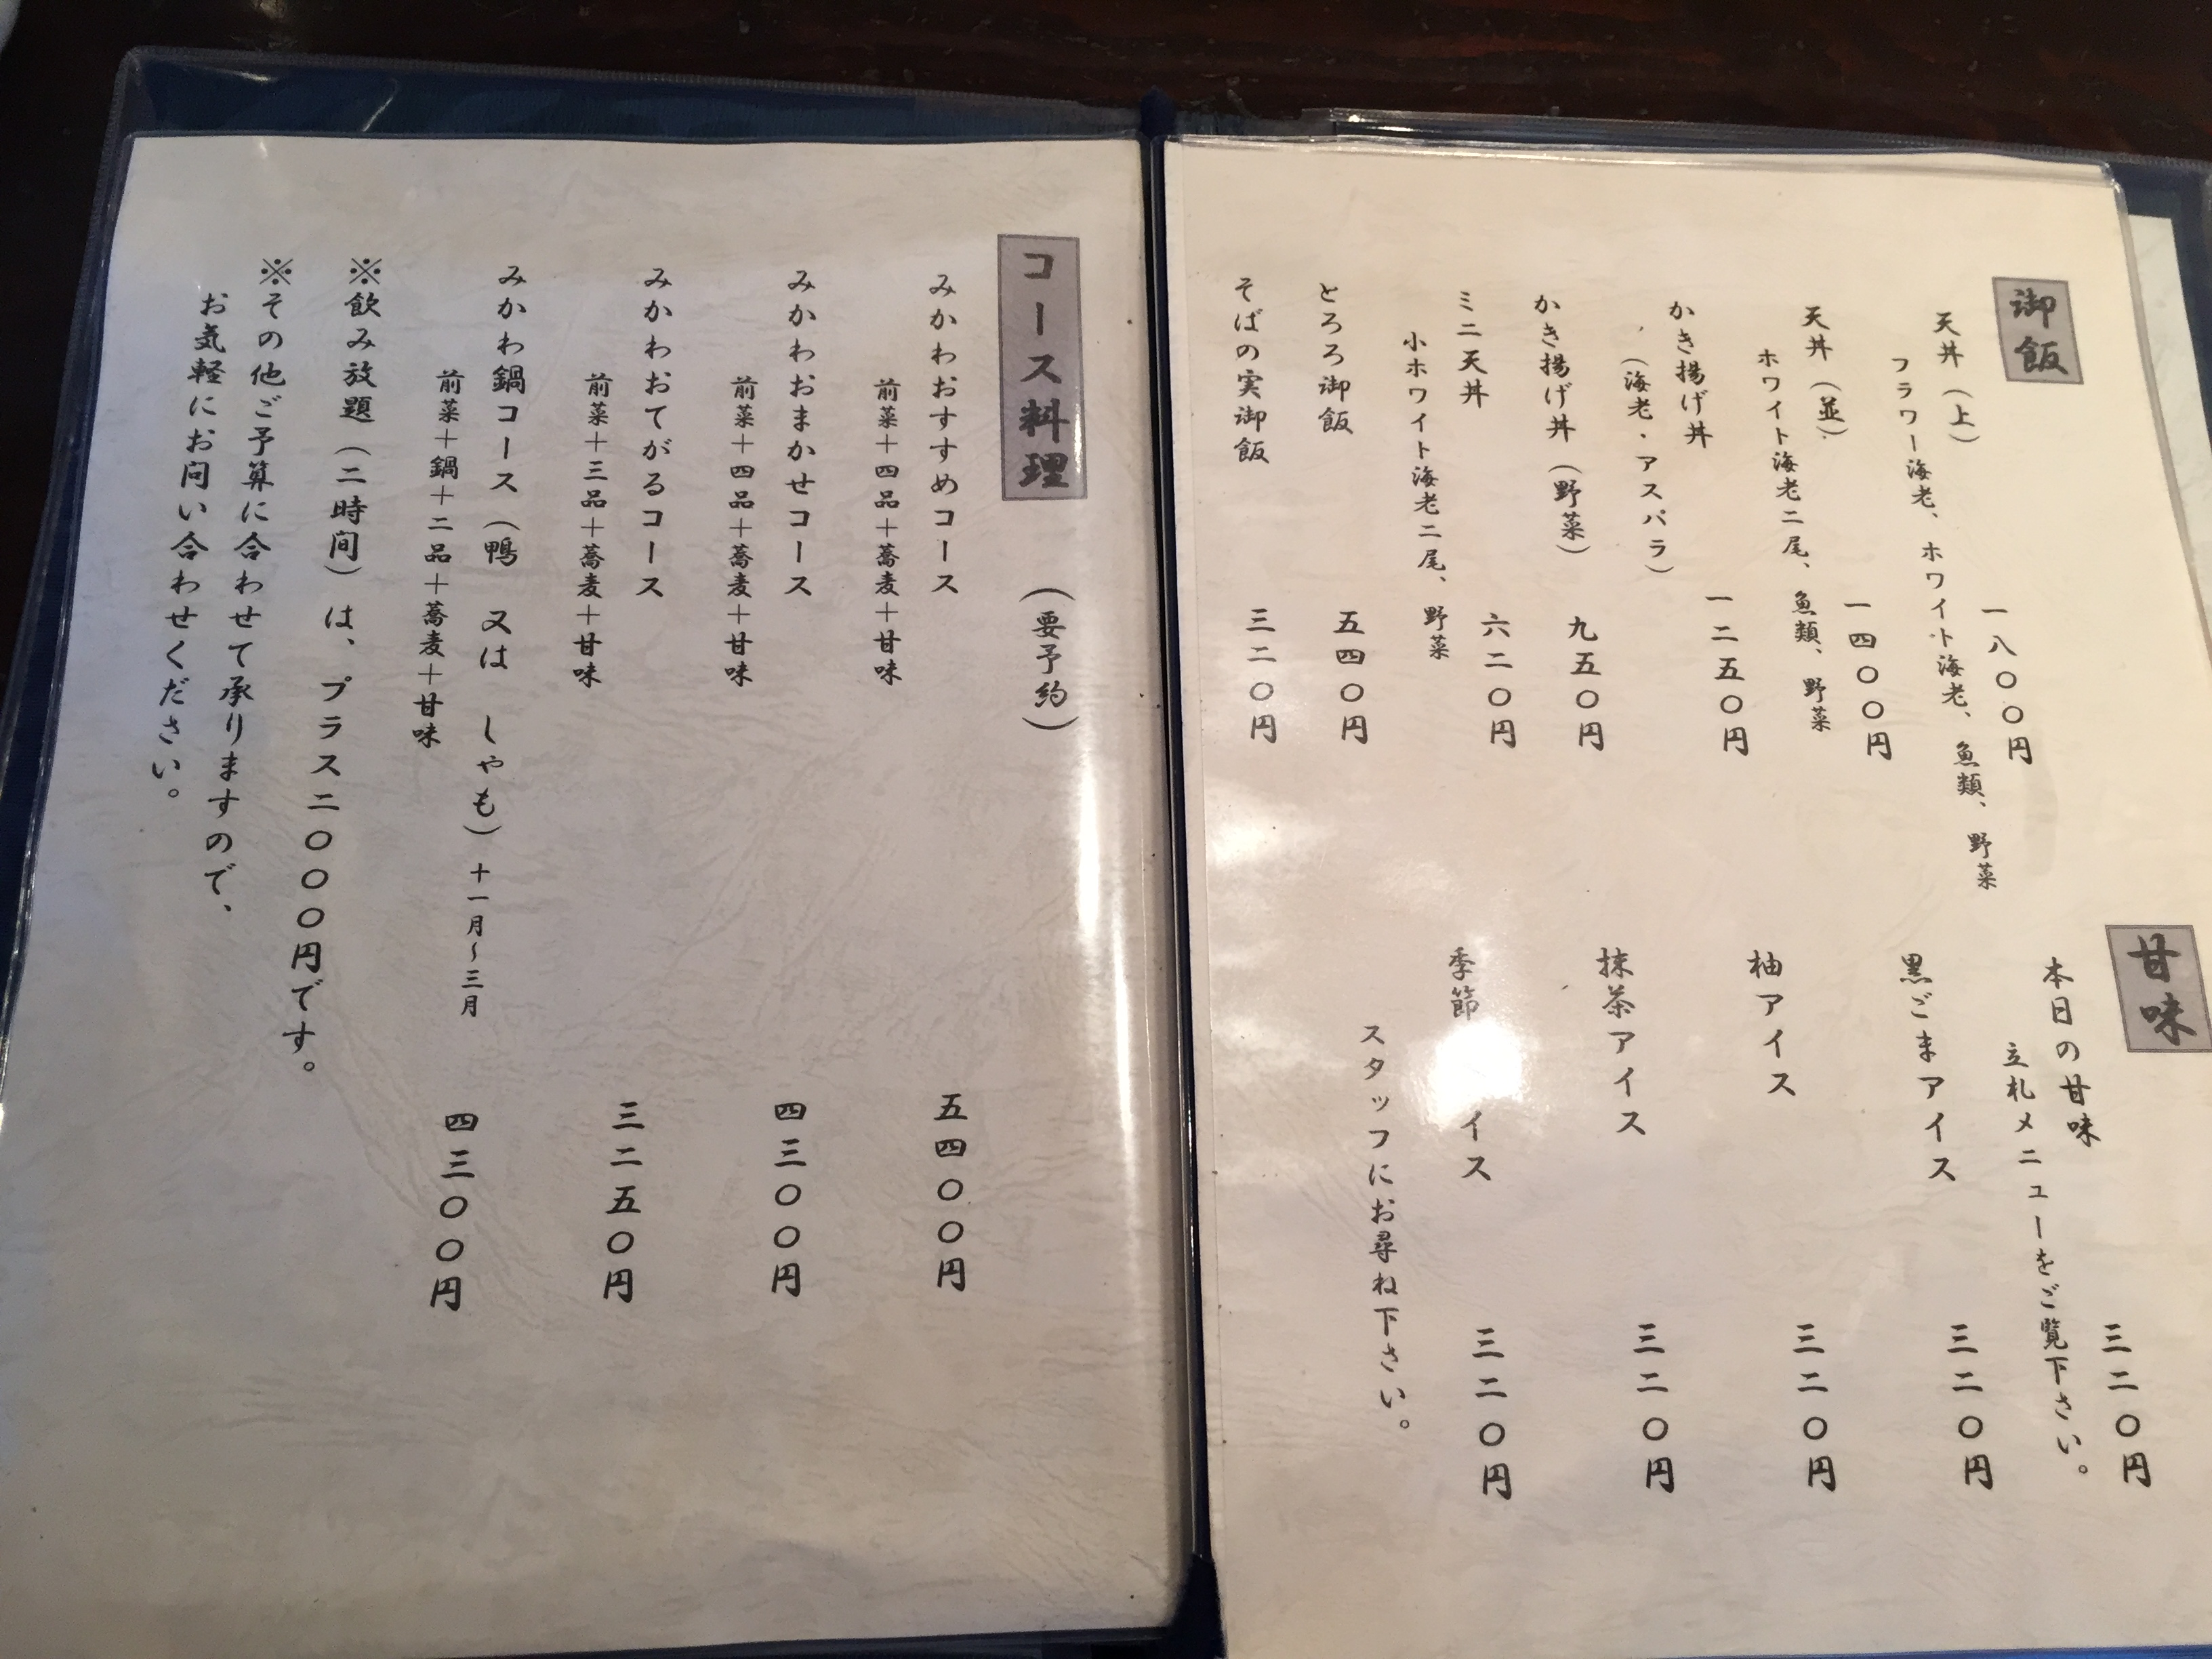 御飯
天丼（上）
一八〇〇円
フラワー海老、ホワイト海老、魚類、野菜
天丼（並）
一四〇〇円
ホワイト海老二尾、魚類、野菜
かき揚げ丼
一二五〇円
（海老・アスパラ）
かき揚げ丼（野菜）
九五〇円
ミニ天丼
六二〇円
小ホワイト海老二尾、野菜
とろろ御飯
五四〇円
そばの実御飯
三二〇円
甘味
本日の甘味
三二〇円
立札メニューをご覧下さい。
黒ごまアイス
三二〇円
柚アイス
三二〇円
抹茶アイス
三二〇円
季節 イス
三二〇円
スタッフにお尋ね下さい。
コース料理（要予約）
みかわおすすめコース
五四〇〇円
前菜＋四品＋蕎麦＋甘味
みかわおまかせコース
四三〇〇円
前菜＋四品＋蕎麦＋甘味
みかわおてがるコース
三二五〇円
前菜＋三品＋蕎麦＋甘味
みかわ鍋コース（鴨 又は しゃも）十一月～三月
四三〇〇円
前菜＋鍋＋二品＋蕎麦＋甘味
※飲み放題（二時間）は、プラス二〇〇〇円です。
※その他ご予算に合わせて承りますので、
お気軽にお問い合わせください。